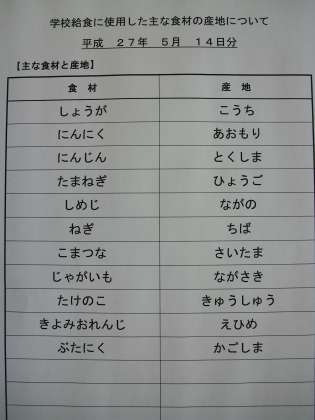 学校給食に使用した主な食材の産地について
平成 27年 5月 14日分
【主な食材と産地】
食材 産地
しょうが こうち
にんにく あおもり
にんじん とくしま
たまねぎ ひょうご
しめじ ながの
ねぎ ちば
こまつな さいたま
じゃがいも ながさき
たけのこ きゅうしゅう
きよみおれんじ えひめ
ぶたにく かごしま